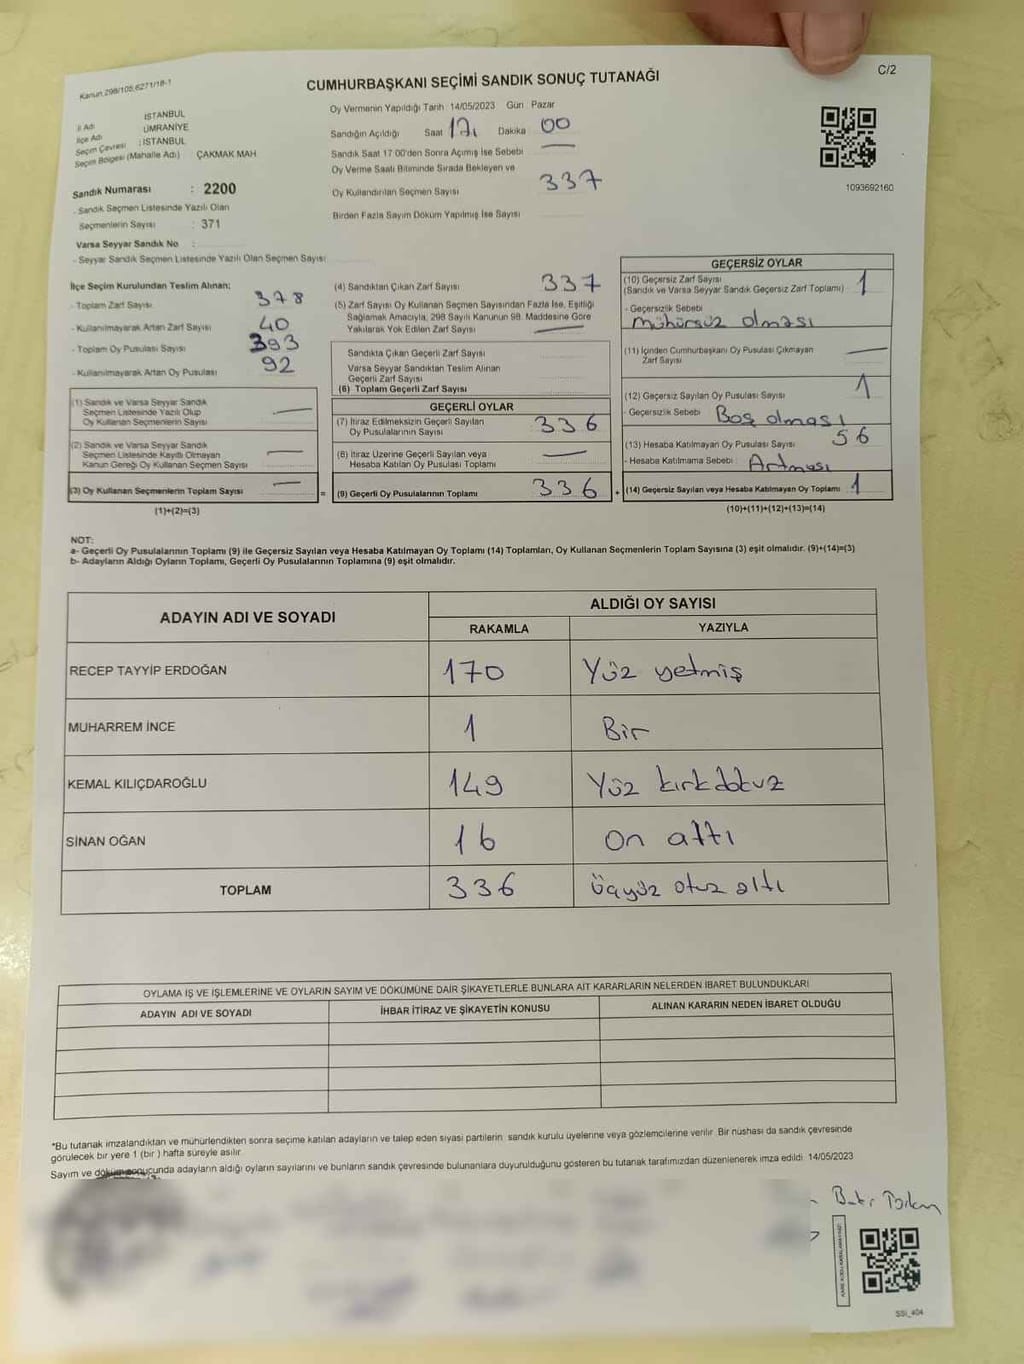 C/2
Kanun,298/105,6271/18-1
CUMHURBAŞKANI SEÇİMİ SANDIK SONUÇ TUTANAĞI
İl Adı : İSTANBUL
İlçe Adı : ÜMRANİYE
Seçim Çevresi : İSTANBUL
Seçim Bölgesi (Mahalle Adı) ÇAKMAK MAH
Sandık Numarası : 2200
- Sandık Seçmen Listesinde Yazılı Olan
Seçmenlerin Sayısı : 371
Varsa Seyyar Sandık No :
- Seyyar Sandık Seçmen Listesinde Yazılı Olan Seçmen Sayısı
Oy Vermenin Yapıldığı Tarih 14/05/2023 Gün Pazar
Sandığın Açıldığı Saat 17 Dakika 00
Sandık Saat 17:00'den Sonra Açımış İse Sebebi
Oy Verme Saati Bitiminde Sırada Bekleyen ve
Oy Kullandırılan Seçmen Sayısı 337
Birden Fazla Sayım Döküm Yapılmış İse Sayısı
1093692160
İlçe Seçim Kurulundan Teslim Alınan:
- Toplam Zarf Sayısı 378
- Kullanılmayarak Artan Zarf Sayısı 40
- Toplam Oy Pusulası Sayısı 393
- Kullanılmayarak Artan Oy Pusulası 92
(1) Sandık ve Varsa Seyyar Sandık
Seçmen Listesinde Yazılı Olup
Oy Kullanan Seçmenlerin Sayısı
(2) Sandık ve Varsa Seyyar Sandık
Seçmen Listesinde Kayıtlı Olmayan
Kanun Gereği Oy Kullanan Seçmen Sayısı
(3) Oy Kullanan Seçmenlerin Toplam Sayısı =
(1)+(2)=(3)
(4) Sandıktan Çıkan Zarf Sayısı 337
(5) Zarf Sayısı Oy Kullanan Seçmen Sayısından Fazla İse, Eşitliği
Sağlamak Amacıyla, 298 Sayılı Kanunun 98. Maddesine Göre
Yakılarak Yok Edilen Zarf Sayısı
Sandıkta Çıkan Geçerli Zarf Sayısı
Varsa Seyyar Sandıktan Teslim Alınan
Geçerli Zarf Sayısı
(6) Toplam Geçerli Zarf Sayısı
GEÇERLİ OYLAR
(7) İtiraz Edilmeksizin Geçerli Sayılan
Oy Pusulalarının Sayısı 336
(8) İtiraz Üzerine Geçerli Sayılan veya
Hesaba Katılan Oy Pusulası Toplamı
(9) Geçerli Oy Pusulalarının Toplamı 336 +
GEÇERSİZ OYLAR
(10) Geçersiz Zarf Sayısı
(Sandık ve Varsa Seyyar Sandık Geçersiz Zarf Toplamı) 1
- Geçersizlik Sebebi
Mühürsüz olması
(11) İçinden Cumhurbaşkanı Oy Pusulası Çıkmayan
Zarf Sayısı
(12) Geçersiz Sayılan Oy Pusulası Sayısı 1
- Geçersizlik Sebebi Boş olması
(13) Hesaba Katılmayan Oy Pusulası Sayısı 56
- Hesaba Katılmama Sebebi : Artması
(14) Geçersiz Sayılan veya Hesaba Katılmayan Oy Toplamı 1
(10)+(11)+(12)+(13)=(14)
NOT:
a- Geçerli Oy Pusulalarının Toplamı (9) ile Geçersiz Sayılan veya Hesaba Katılmayan Oy Toplamı (14) Toplamları, Oy Kullanan Seçmenlerin Toplam Sayısına (3) eşit olmalıdır. (9)+(14)=(3)
b- Adayların Aldığı Oyların Toplamı, Geçerli Oy Pusulalarının Toplamına (9) eşit olmalıdır.
ADAYIN ADI VE SOYADI ALDIĞI OY SAYISI
RAKAMLA YAZIYLA
RECEP TAYYİP ERDOĞAN 170 Yüz yetmiş
MUHARREM İNCE 1 Bir
KEMAL KILIÇDAROĞLU 149 Yüz kırkdokuz
SİNAN OĞAN 16 On altı
TOPLAM 336 Üçyüz otuz altı
OYLAMA İŞ VE İŞLEMLERİNE VE OYLARIN SAYIM VE DÖKÜMÜNE DAİR ŞİKAYETLERLE BUNLARA AİT KARARLARIN NELERDEN İBARET BULUNDUKLARI
ADAYIN ADI VE SOYADI İHBAR İTİRAZ VE ŞİKAYETİN KONUSU ALINAN KARARIN NEDEN İBARET OLDUĞU
*Bu tutanak imzalandıktan ve mühürlendikten sonra seçime katılan adayların ve talep eden siyasi partilerin sandık kurulu üyelerine veya gözlemcilerine verilir. Bir nüshası da sandık çevresinde
görülecek bir yere 1 (bir ) hafta süreyle asılır.
Sayım ve döküm sonucunda adayların aldığı oyların sayılarını ve bunların sandık çevresinde bulunanlara duyurulduğunu gösteren bu tutanak tarafımızdan düzenlenerek imza edildi. 14/05/2023
SSİ_404